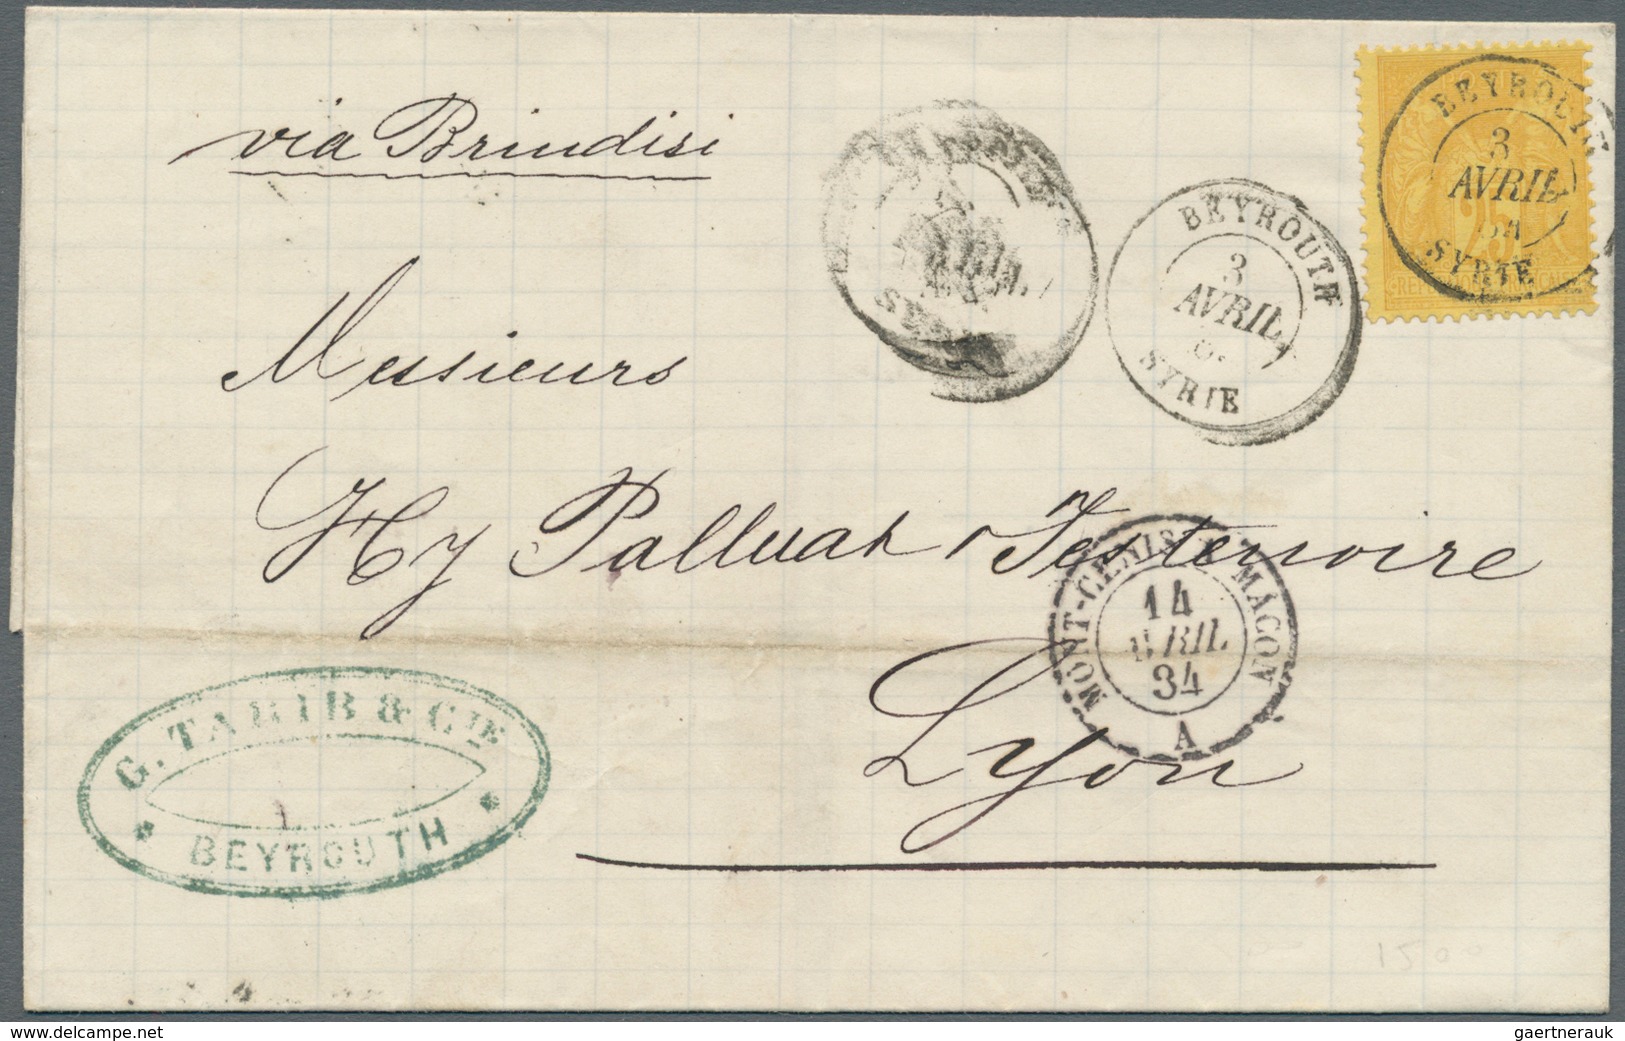 via Brindisi
BEYROUTH
3
AVRIL
SYRIE
BEYROUTH
3
AVRIL
84
SYRIE
25
Messieurs
Hy Palluat & Testenoire
Lyon
MONT-CENIS MACON
14
AVRIL
84
A
G. TABIB & CIE
BEYROUTH
1500
www.delcampe.net
gaertnerauk